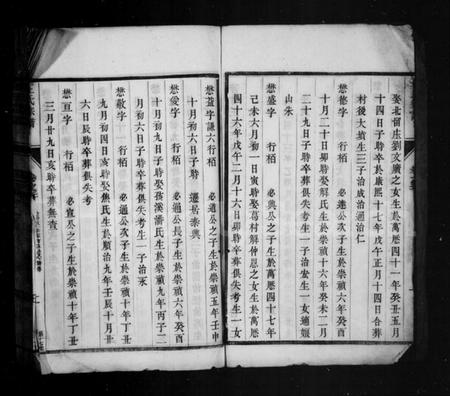 娶北留庄劉文廣之女生於萬曆四十一年癸丑五月
十四日子時卒於康熙十七年戊午正月十四日合葬
村後大墳生三子治成治通治仁
懋德字 行栢 必達公次子生於崇禎六年癸未二月
二十九日子時娶解氏生於崇禎六年癸酉
十月二十日卯時卒葬俱失考生一子治宏生一女適嫄
山朱
懋盛字 行栢 必興公之子生於萬曆四十七年
己未六月初一日寅時娶葛村解仲恩之女生於萬曆
四十六年戊午二月十六日卯時卒葬俱失考生一女
懋蓋字謙六行栢 必通公之子生於崇禎五年壬申
十月初六日子時 遷居泰興
懋愛字 行栢 必通公長子生於崇禎六年癸酉
十月初九日子時娶孩溪潘氏生於崇禎九年丙子二
月初六日子時卒葬俱失考生一子治永
懋敬字 行栢 必通公次子生於崇禎十年丁丑
九月初四日亥時娶焦氏生於順治九年壬辰十月廿
六日辰時卒葬俱失考
懋亘字 行栢 必宣公之子生於崇禎十年丁丑
三月廿九日亥時卒葬無查